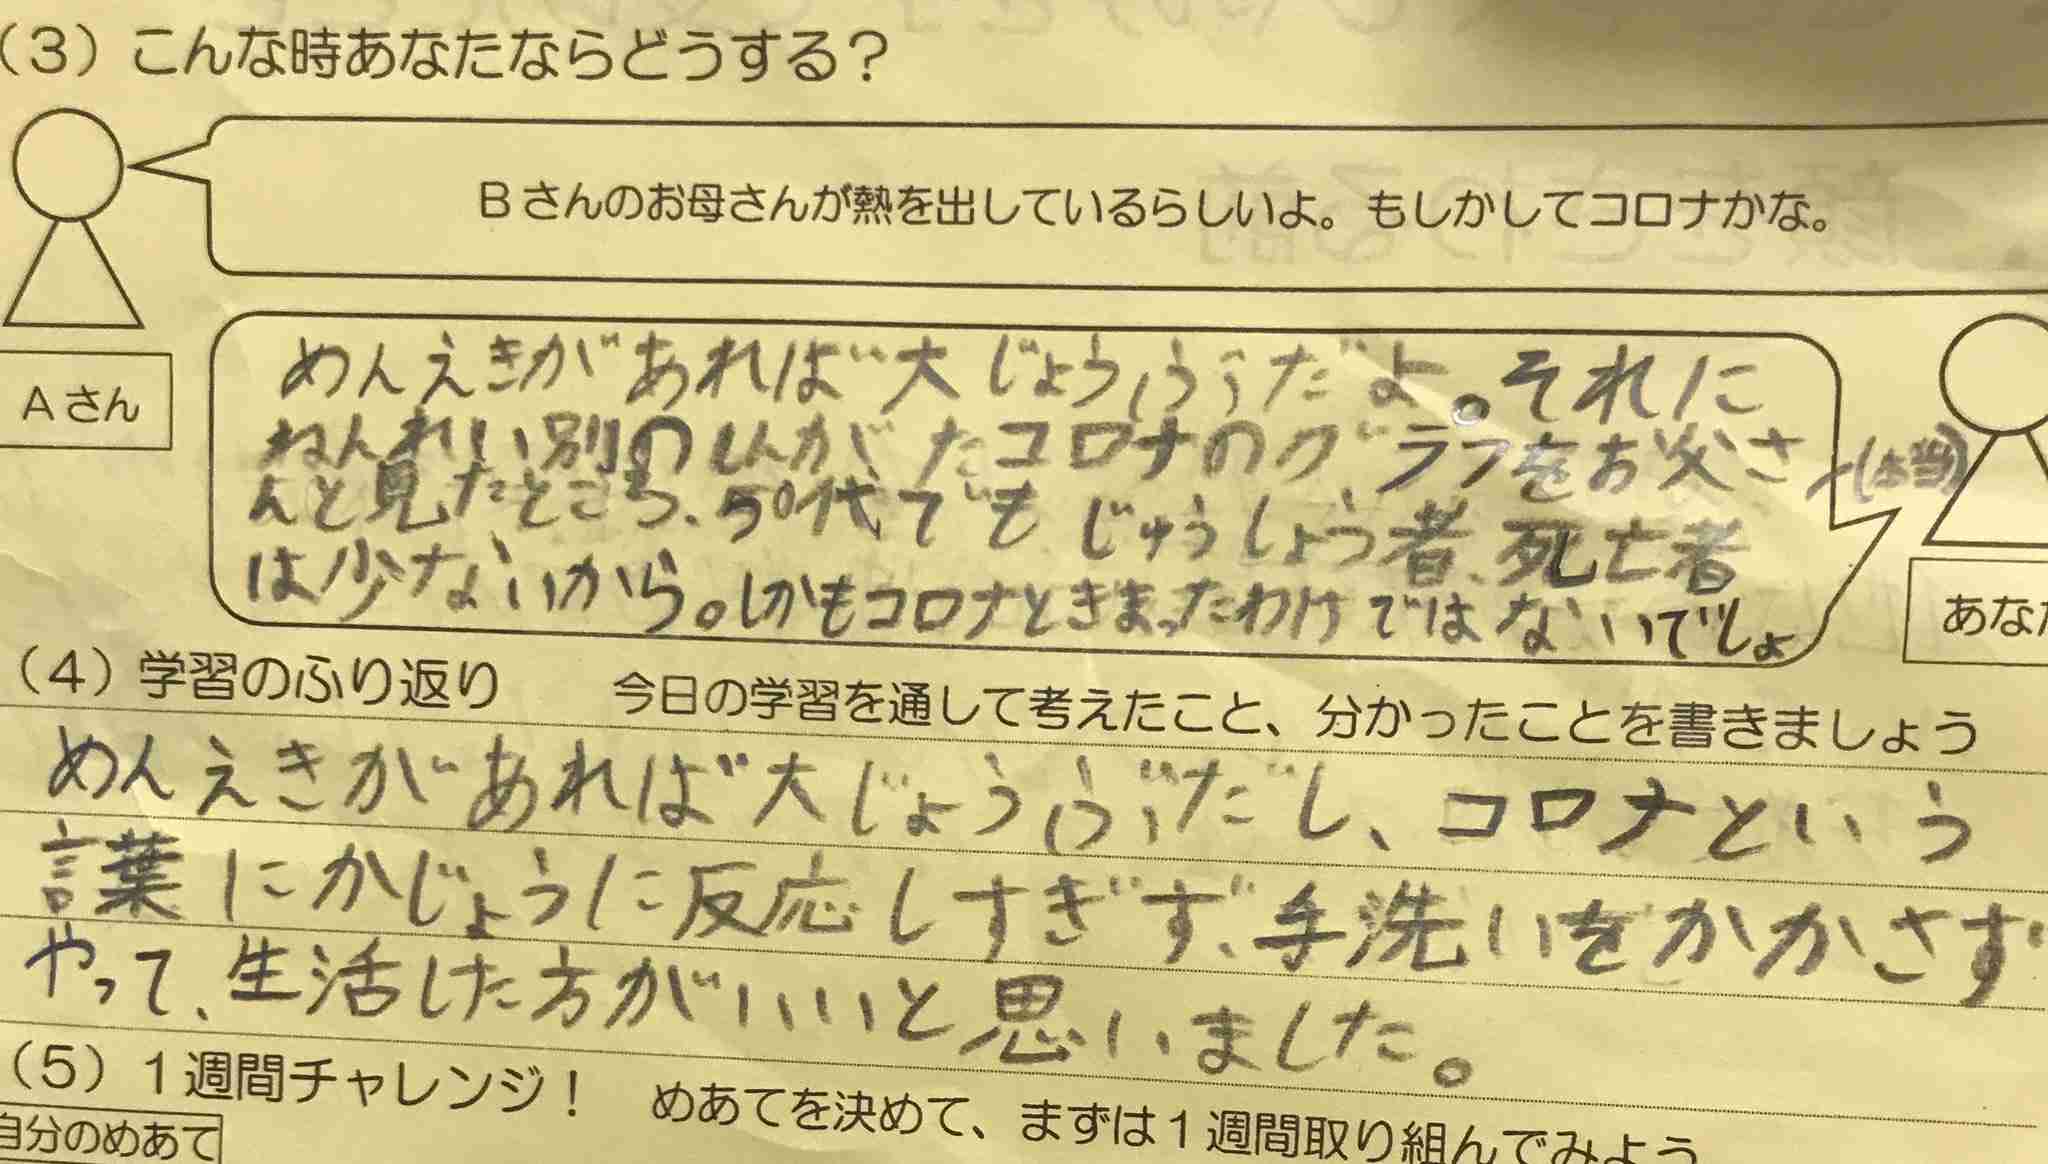 (3)こんな時あなたならどうする？
Bさんのお母さんが熱を出しているらしいよ。もしかしてコロナかな。
Aさん
めんえきがあれば大じょうぶだよ。それに
ねんれい別のしんがたコロナのグラフをお父さ
(本当)
んと見たところ、50代でもじゅうしょう者、死亡者
は少ないから。しかもコロナときまったわけではないでしょ
あなた
(4)学習のふり返り 今日の学習を通して考えたこと、分かったことを書きましょう
めんえきがあれば大じょうぶだし、コロナという
言葉にかじょうに反応しすぎず、手洗いをかかさず
やって、生活した方がいいと思いました。
(5)1週間チャレンジ！ めあてを決めて、まずは1週間取り組んでみよう
自分のめあて